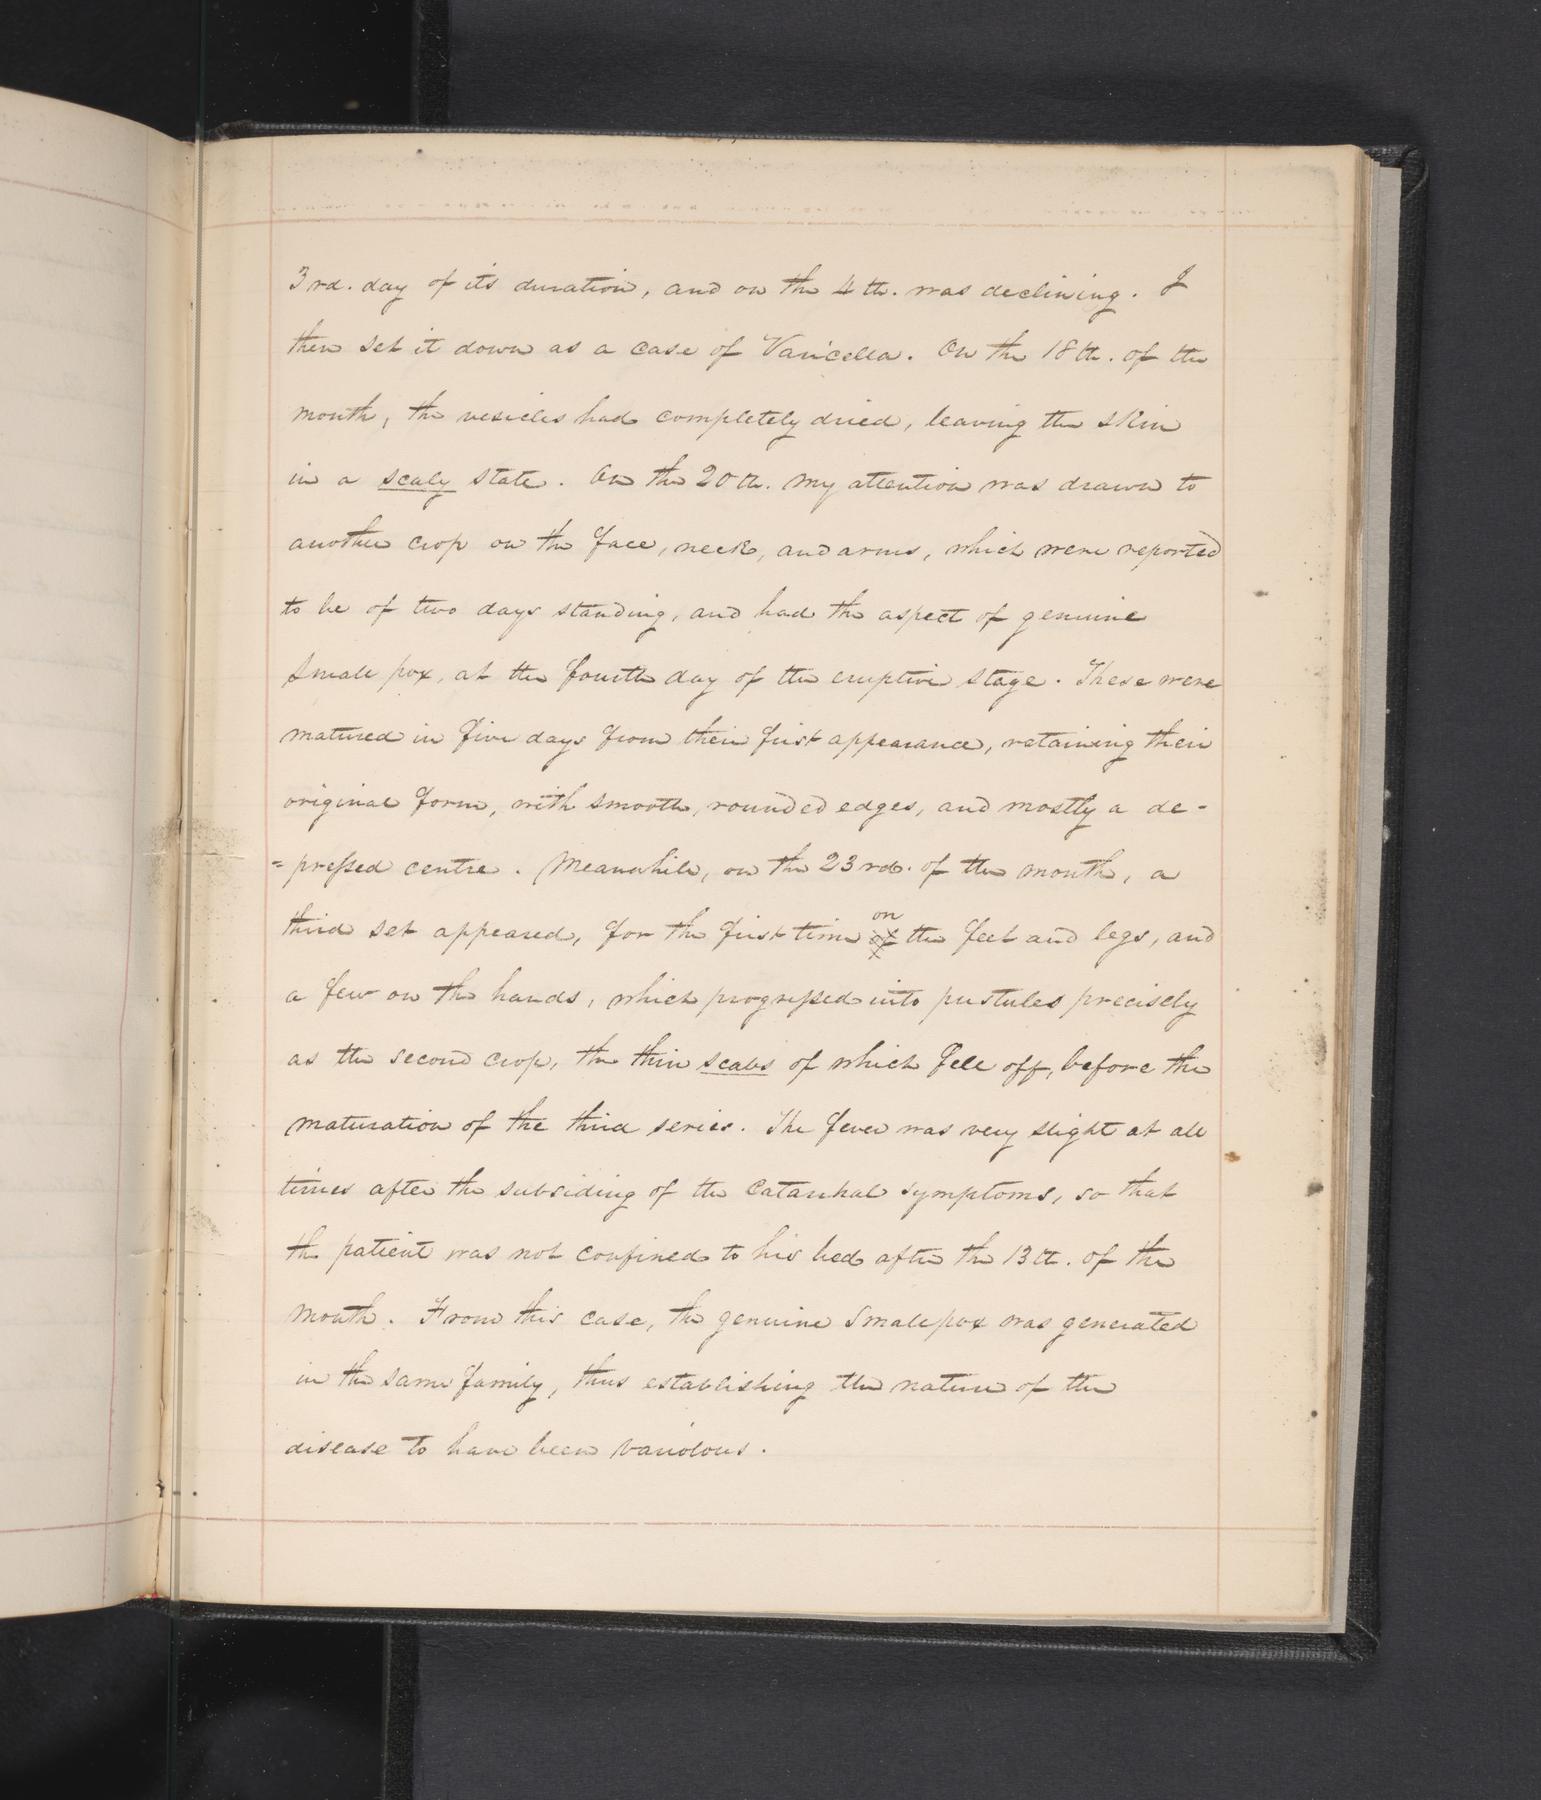 3rd. day of its duration, and on the 4th. was declining. I
then set it down as a case of Varicella. On the 18th. of the
month, the vesicles had completely dried, leaving the skin
in a scaly state. On the 20th. my attention was drawn to
another crop on the face, neck, and arms, which were reported
to be of two days standing, and had the aspect of genuine
Small pox, at the fourth day of the eruptive stage. These were
matured in five days from their first appearance, retaining their
original form, with smooth, rounded edges, and mostly a de-
=pressed centre. Meanwhile, on the 23rd. of the month, a
third set appeared, for the first time of on the feet and legs, and
a few on the hands, which progressed into pustules precisely
as the second crop, the thin scabs of which fell off, before the
maturation of the third series. The fever was very slight at all
times after the subsiding of the Catarrhal symptoms, so that
the patient was not confined to his bed after the 13th. of the
month. From this case, the genuine Small pox was generated
in the same family, thus establishing the nature of the
disease to have been variolous.